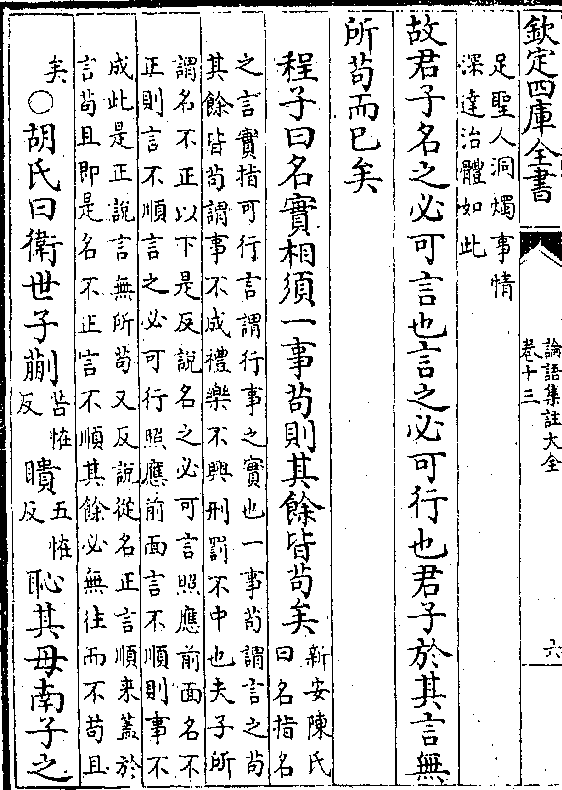 欽定四庫全書
論語集註大全
卷十三
六
足聖人洞燭事情
深達治體如此
故君子名之必可言也言之必可行也君子於其言無
所苟而已矣
程子曰名實相須一事苟則其餘皆苟矣
新安陳氏
曰名指名
之言實指可行言謂行事之實也一事苟謂言之苟
其餘皆苟謂事不成禮樂不興刑罰不中也夫子所
謂名不正以下是反說名之必可言照應前面名不
正則言不順言之必可行照應前面言不順則事不
成此是正說言無所苟又反說從名正言順来蓋於
言苟且即是名不正言不順其餘必無往而不苟且
矣○胡氏曰衛世子蒯
苦怪
反
聵
五怪
反
恥其母南子之